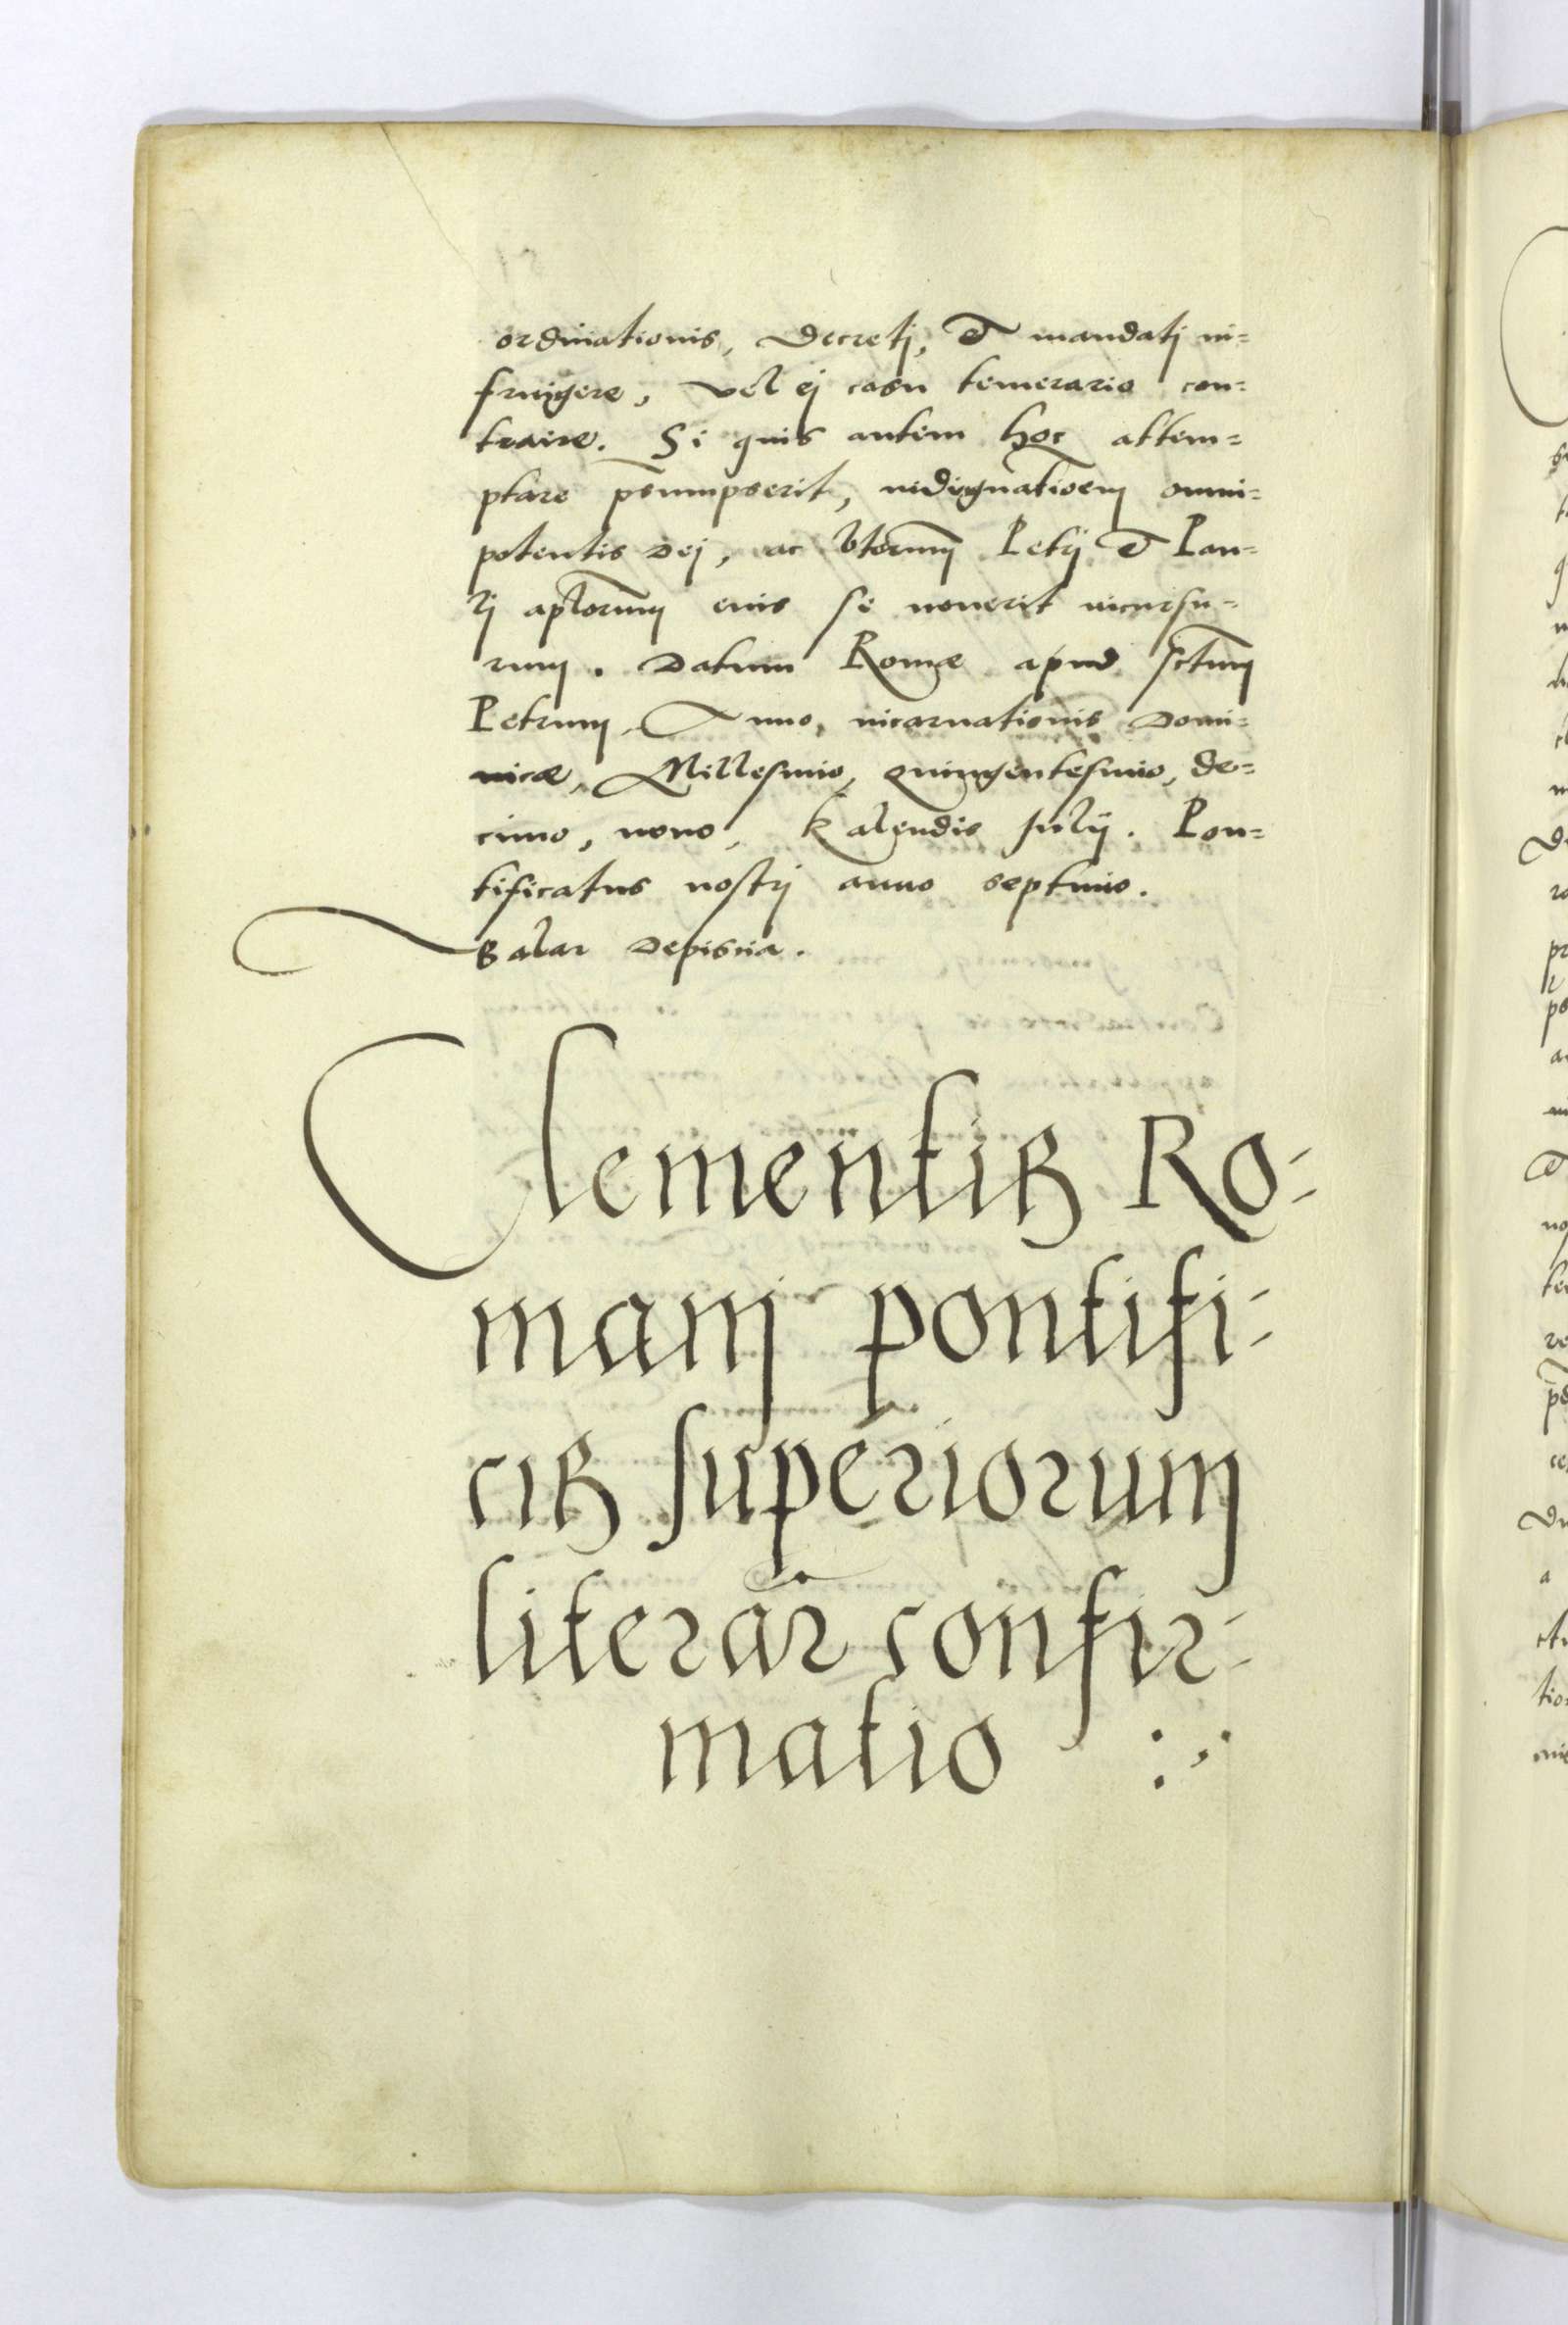 ordinationis, decretj, et mandatj in=
fringere, vel ej casu temerario con=
traire. Si quis autem hoc attem=
ptare p̄sumpserit, indignatioem omni=
potentis dej, ac btorum Petrj et Pau=
lj aplorum eius se noverit incursu=
rum. Datum Romæ apud sctum
Petrum, Anno, incarnationis domi=
nicæ, Millesimo, quingentesimo, de=
cimo, nono, Kalendis Julij. Pon=
tificatus nostrj anno septimo.
Balar depiscia.
Clementis Ro=
manj pontifi=
cis superiorum
literar̄ confir=
matio